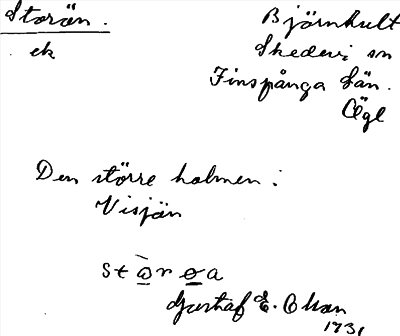 Storön.
ek
Björnhult
Skedevi sn
Finspånga län.
Ögl
Den större holmen i
Visjön
Gustaf E. Olson
1931